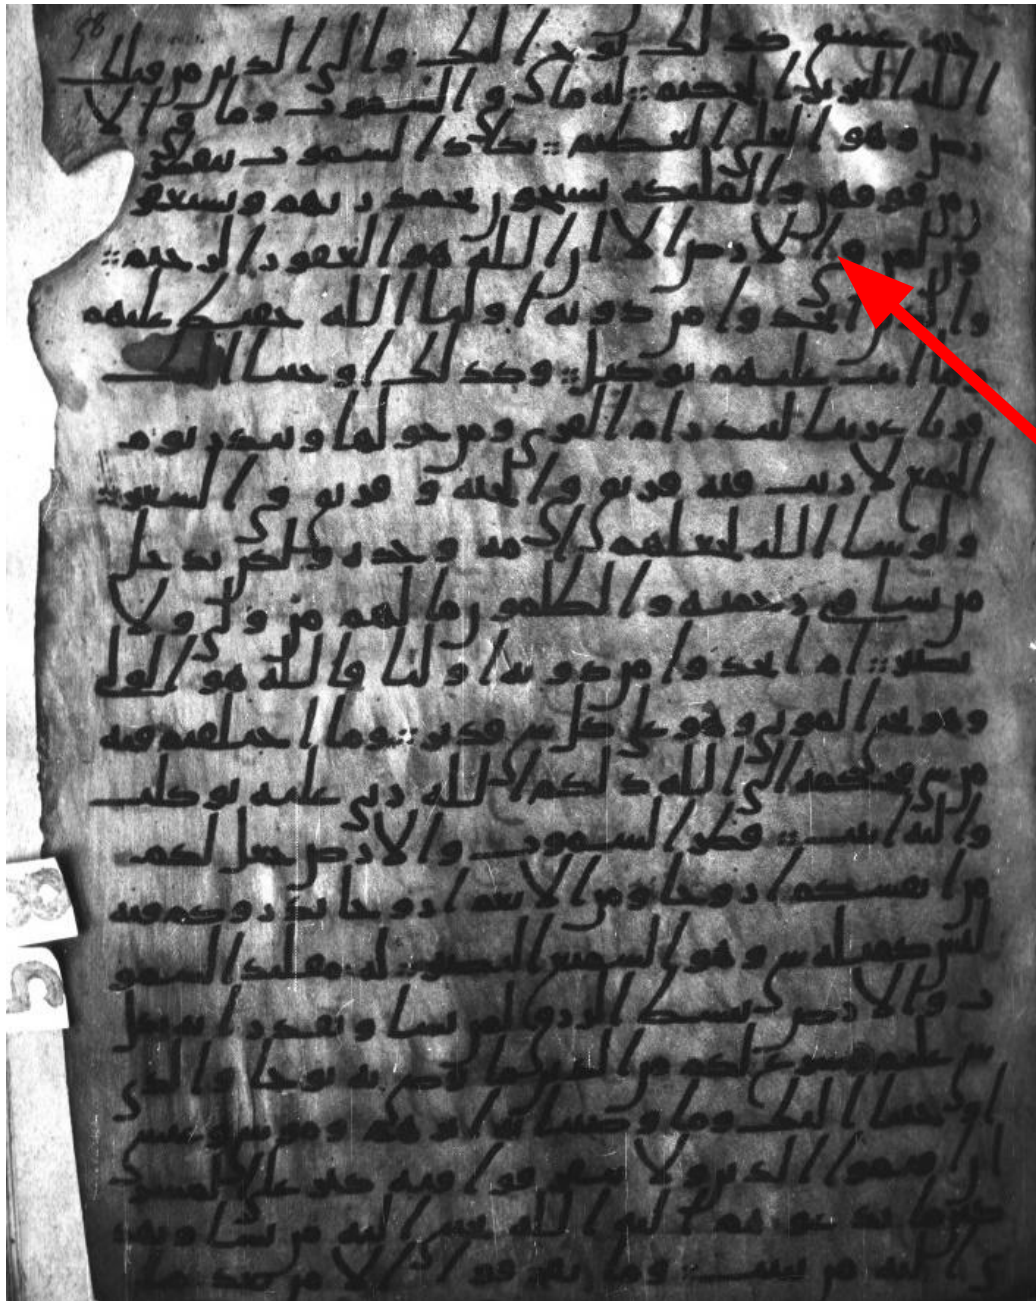 حم عسق كذلك يوحى اليك والى الذين من قبلك
الله العزيز الحكيم ؞ له ما فى السموت وما فى الا
رض وهو العلى العظيم ؞ تكاد السموت يتفطر
ن من فوقهن والملئكة يسبحون بحمد ربهم ويستغفر
ون لمن فى الارض الا ان الله هو الغفور الرحيم ؞
والذين اتخذوا من دونه اوليا الله حفيظ عليهم
وما انت عليهم بوكيل ؞ وكذلك اوحينا اليك
قرنا عربيا لتنذر ام القرى ومن حولها وتنذر يوم
الجمع لا ريب فيه فريق فى الجنة و فريق فى السعير ؞
ولو شا الله لجعلهم امة وحدة ولكن يدخل
من يشا فى رحمته والظلمون ما لهم من ولى ولا
نصير ؞ ام اتخذوا من دونه اوليا فالله هو الولى
وهو يحى الموتى وهو على كل شى قدير ؞ وما اختلفتم فيه
من شى فحكمه الى الله ذلكم الله ربى عليه توكلت
واليه انيب ؞ فطر السموت والارض جعل لكم
من انفسكم ازوجا ومن الانعم ازوجا يذروكم فيه
ليس كمثله شى وهو السميع البصير ؞ له مقليد السمو
ت والارض يبسط الرزق لمن يشا ويقدر انه بكل
شى عليم شرع لكم من الدين ما وصى به نوحا والذى
اوحينا اليك وما وصينا به ابرهيم وموسى وعيسى
ان اقيموا الدين ولا تتفرقوا فيه كبر على المشركين
ما تدعوهم اليه الله يجتبى اليه من يشا ويهد
ى اليه من ينيب ؞ وما تفرقوا الا من بعد ما